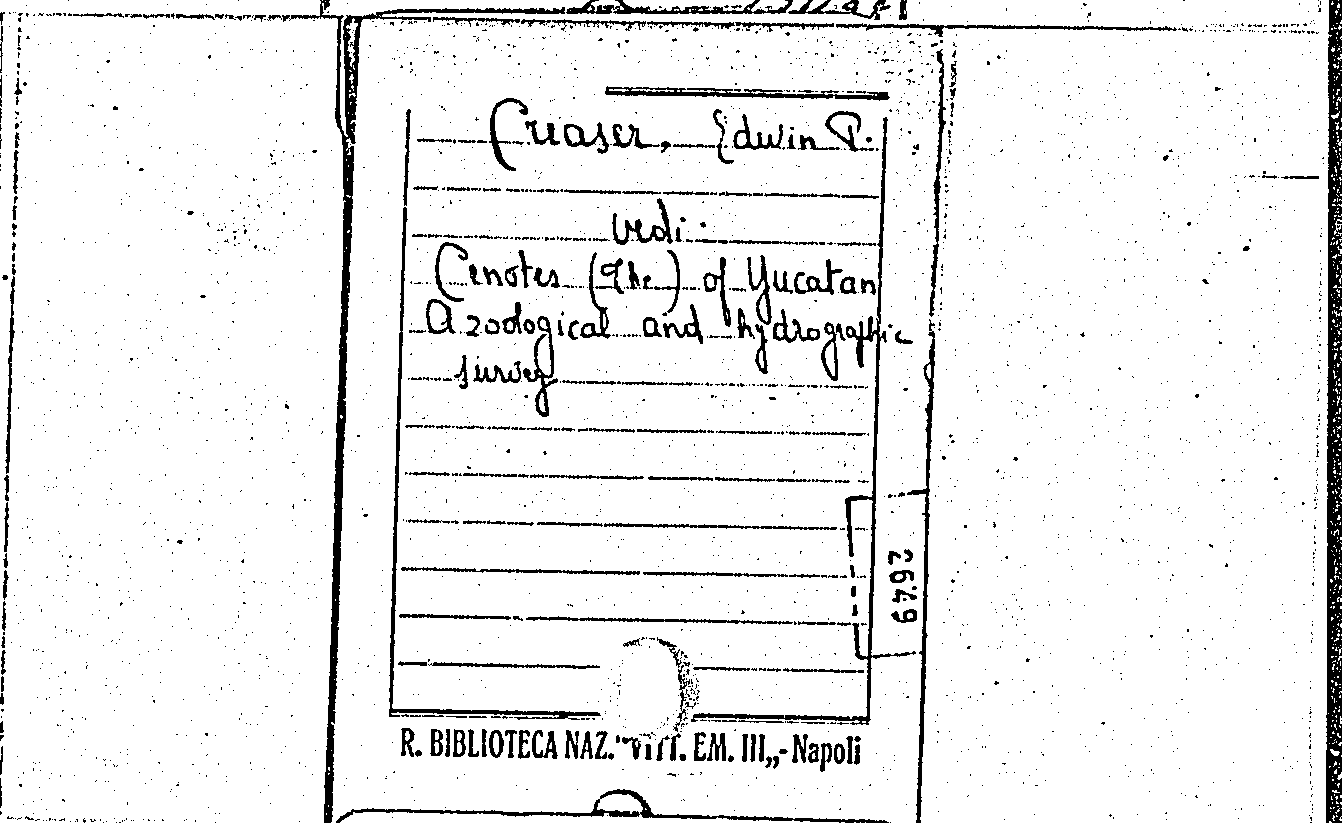 Creaser, Edwin P.
vedi:
Cenotes (The) of Yucatan
A zoological and hydrographic
survey
2649
R. BIBLIOTECA NAZ. "VITT. EM. III„ - Napoli